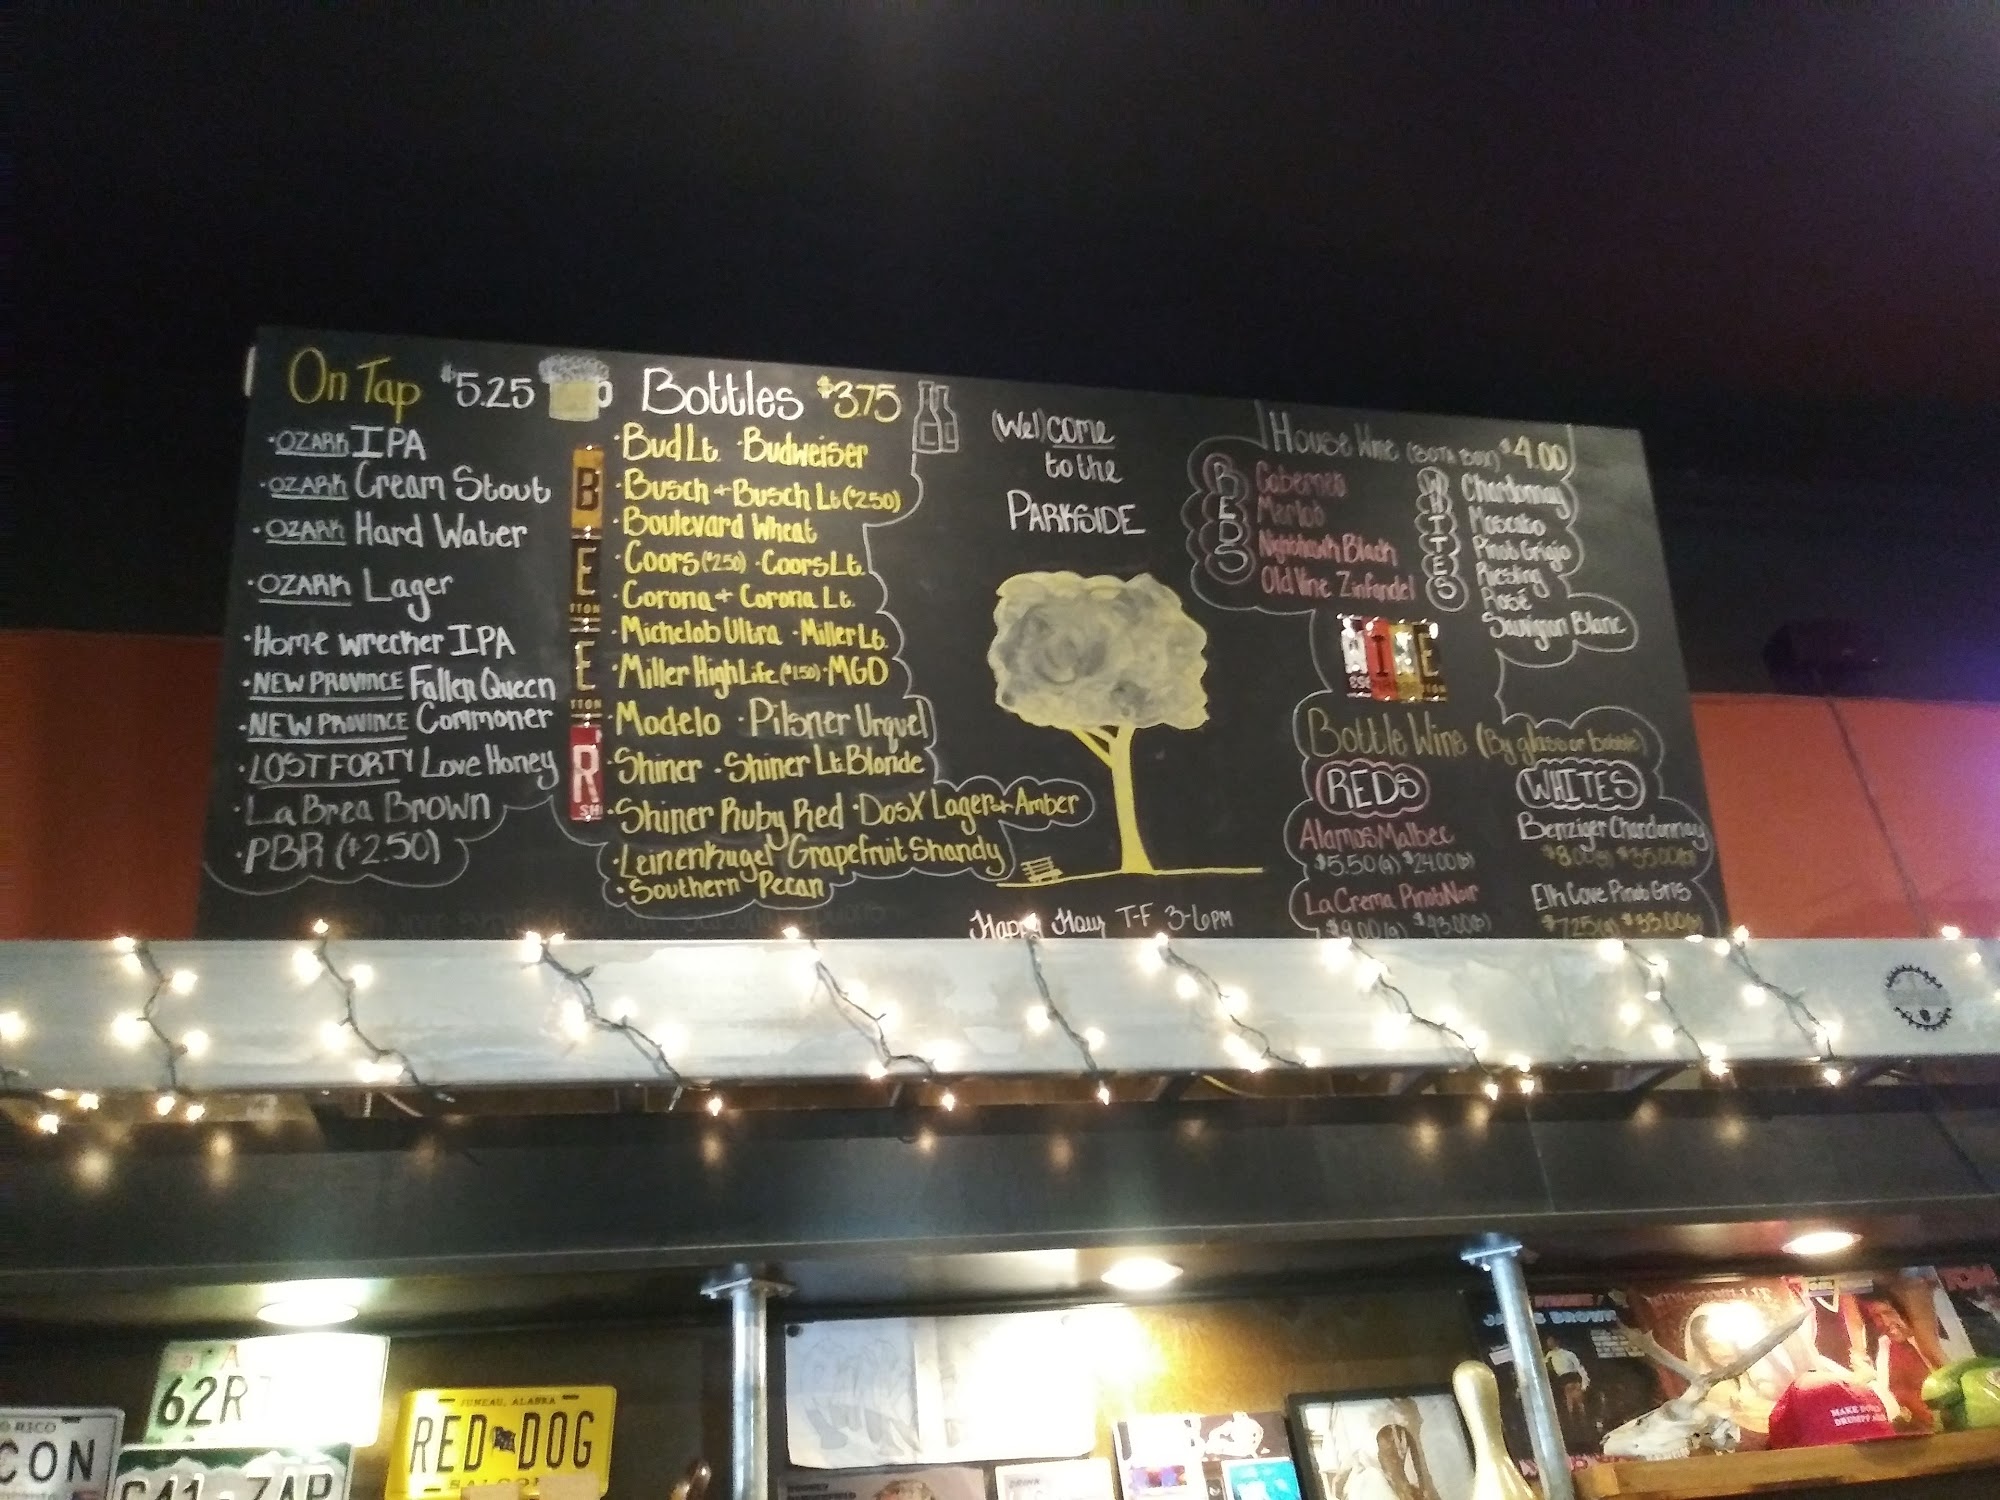 On Tap $5.25
·OZARK IPA
·OZARK Cream Stout
·OZARK Hard Water
·OZARK Lager
·Home wrecker IPA
·NEW PROVINCE Fallen Queen
·NEW PROVINCE Commoner
·LOST FORTY Love Honey
·La Brea Brown
·PBR ($2.50)
BEER
Bottles $3.75
·Bud Lt. ·Budweiser
·Busch + Busch Lt ($2.50)
·Boulevard Wheat
·Coors ($2.50) ·Coors Lt.
·Corona + Corona Lt.
·Michelob Ultra ·Miller Lt.
·Miller High Life ($1.50) ·MGD
·Modelo ·Pilsner Urquel
·Shiner ·Shiner Lt Blonde
·Shiner Ruby Red ·Dos X Lager + Amber
·Leinenkugel Grapefruit Shandy
·Southern Pecan
(Wel)come
to the
PARKSIDE
Happy Hour T-F 3-6PM
House Wine (BOTA BOX) $4.00
REDS
Cabernet
Merlot
Nighthawk Black
Old Vine Zinfandel
WHITES
Chardonnay
Moscato
Pinot Grigio
Riesling
Rosé
Sauvignon Blanc
WINE
Bottle Wine (By glass or bottle)
REDS
Alamos Malbec
$5.50(g) $24.00(b)
La Crema Pinot Noir
$9.00(g) $43.00(b)
WHITES
Benziger Chardonnay
$8.00(g) $35.00(b)
Elk Cove Pinot Gris
$7.25(g) $33.00(b)
62R
RICO
CON
ZAP
JUNEAU, ALASKA
RED DOG
SALOON
JAMES BROWN
MAKE
DRUMPF